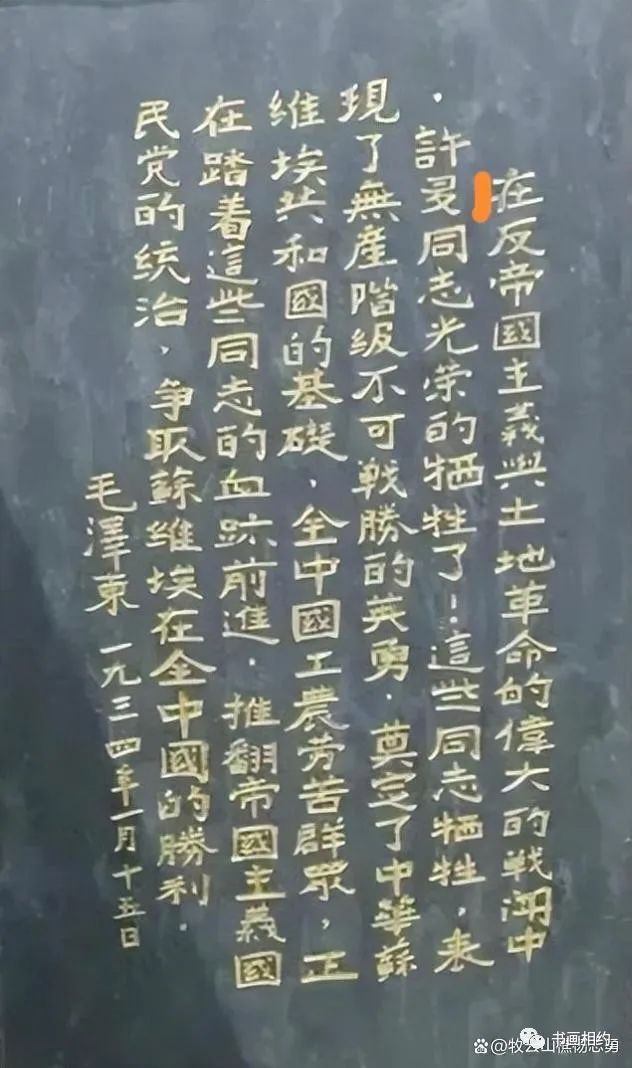 在反帝國主義與土地革命的偉大的戦鬥中
·許多同志光荣的犧牲了!這些同志牺牲,表
現了無產階級不可戰勝的英勇.奠定了中華蘇
維埃共和國的基礎、全中國工農劳苦群眾,正
在踏着這些同志的血跡前進.推翻帝國主義國
民党的統治,争取蘇維埃在全中國的勝利.
毛澤東 一九三四年一月十五日
书画相约
@牧云山樵杨志勇